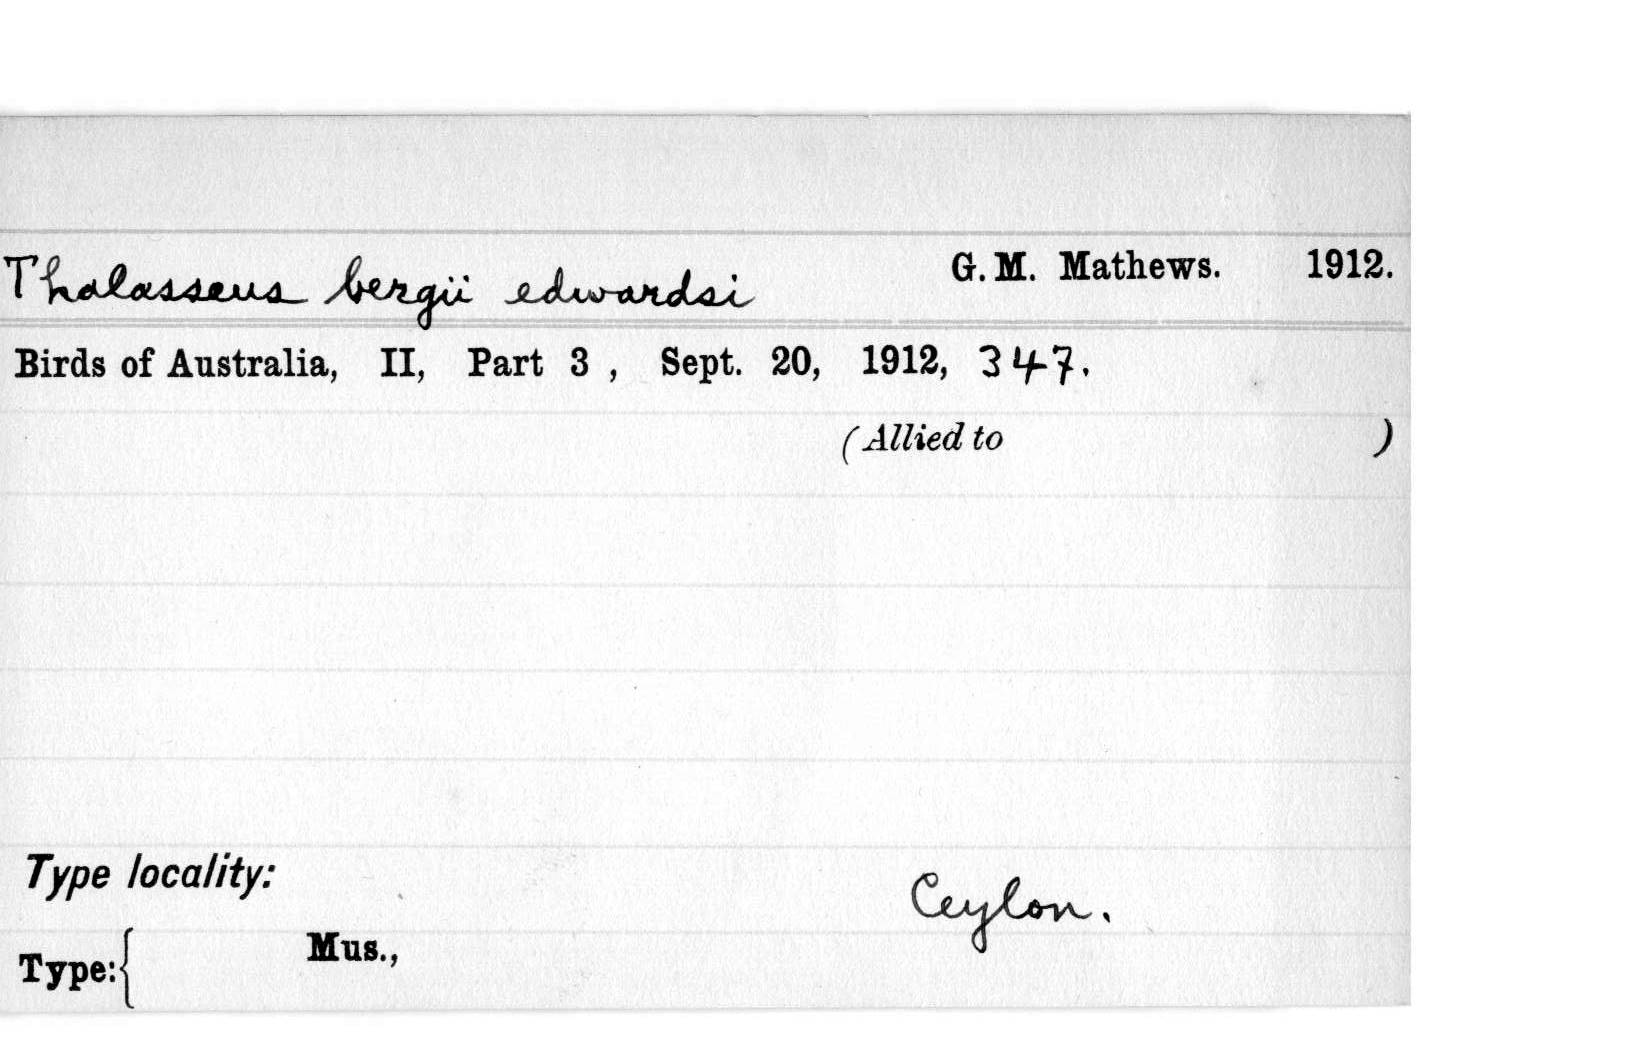 Thalasseus bergii edwardsi G. M. Mathews. 1912.
Birds of Australia, II, Part 3 , Sept. 20, 1912, 347.
(Allied to )
Type locality:
Ceylon.
Type:{ Mus.,